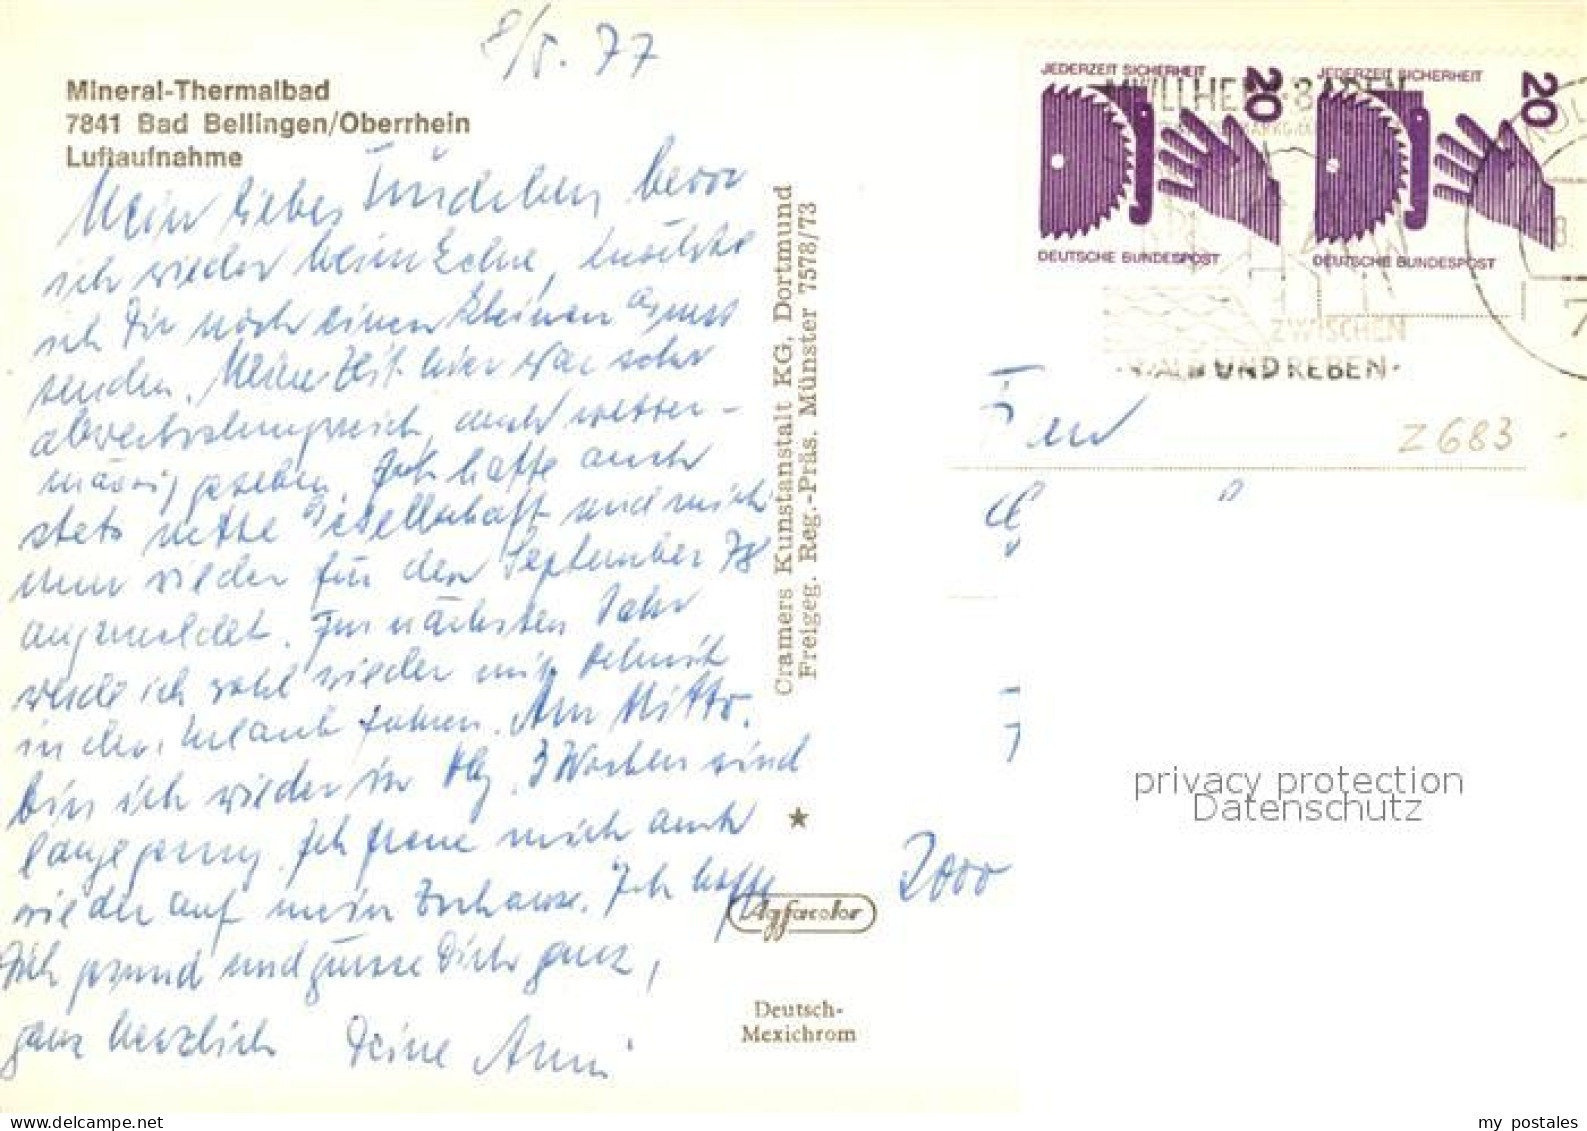 8/5. 77
Mineral-Thermalbad
7841 Bad Bellingen/Oberrhein
Luftaufnahme
Mein liebes Trudchen bevor
ich wieder heimkehre, möchte
ich Dir noch einen kleinen Gruss
senden. Meine Zeit hier war sehr
abwechslungsreich, auch wetter-
mässig gesehen. Ich hatte auch
stets nette Gesellschaft und mich
nun wieder für den September 78
angemeldet. Im nächsten Jahr
werde ich wohl wieder mit
in den Urlaub fahren. Am Mittw.
bin ich wieder in Hbg. 3 Wochen sind
lange genug. Ich freue mich auch
wieder auf mein Zuhause. Ich hoffe
Dich gesund und grüsse Dich ganz,
ganz herzlich Deine Anni
Cramers Kunstanstalt KG, Dortmund
Freigeg. Reg.-Präs. Münster 7578/73
Agfacolor
Deutsch-
Mexichrom
JEDERZEIT SICHERHEIT 20
DEUTSCHE BUNDESPOST
JEDERZEIT SICHERHEIT 20
DEUTSCHE BUNDESPOST
ZWISCHEN
WALD UND REBEN
Z 683
2000
privacy protection
Datenschutz
my postales